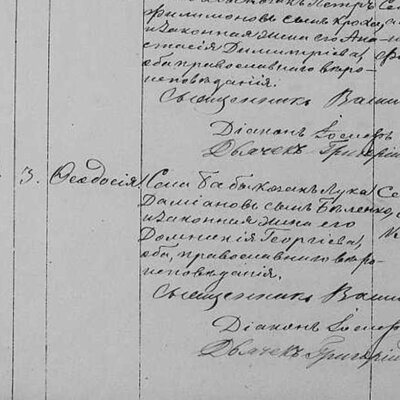 козакъ Петръ
Филимоновъ сынъ Кроха,
и законная жена его Ана-
стасія Димитріева,
оба православнаго вѣро-
исповѣданія.
Священникъ
Діаконъ Іосифъ
Дьячекъ Григорій
3. Ѳеодосія Села Бабы козакъ Лука
Даміановъ сынъ Бѣленко,
и законная жена его
Домникія Георгіева,
оба, православнаго вѣро-
исповѣданія.
Священникъ
Діаконъ Іосифъ
Дьячекъ Григорій